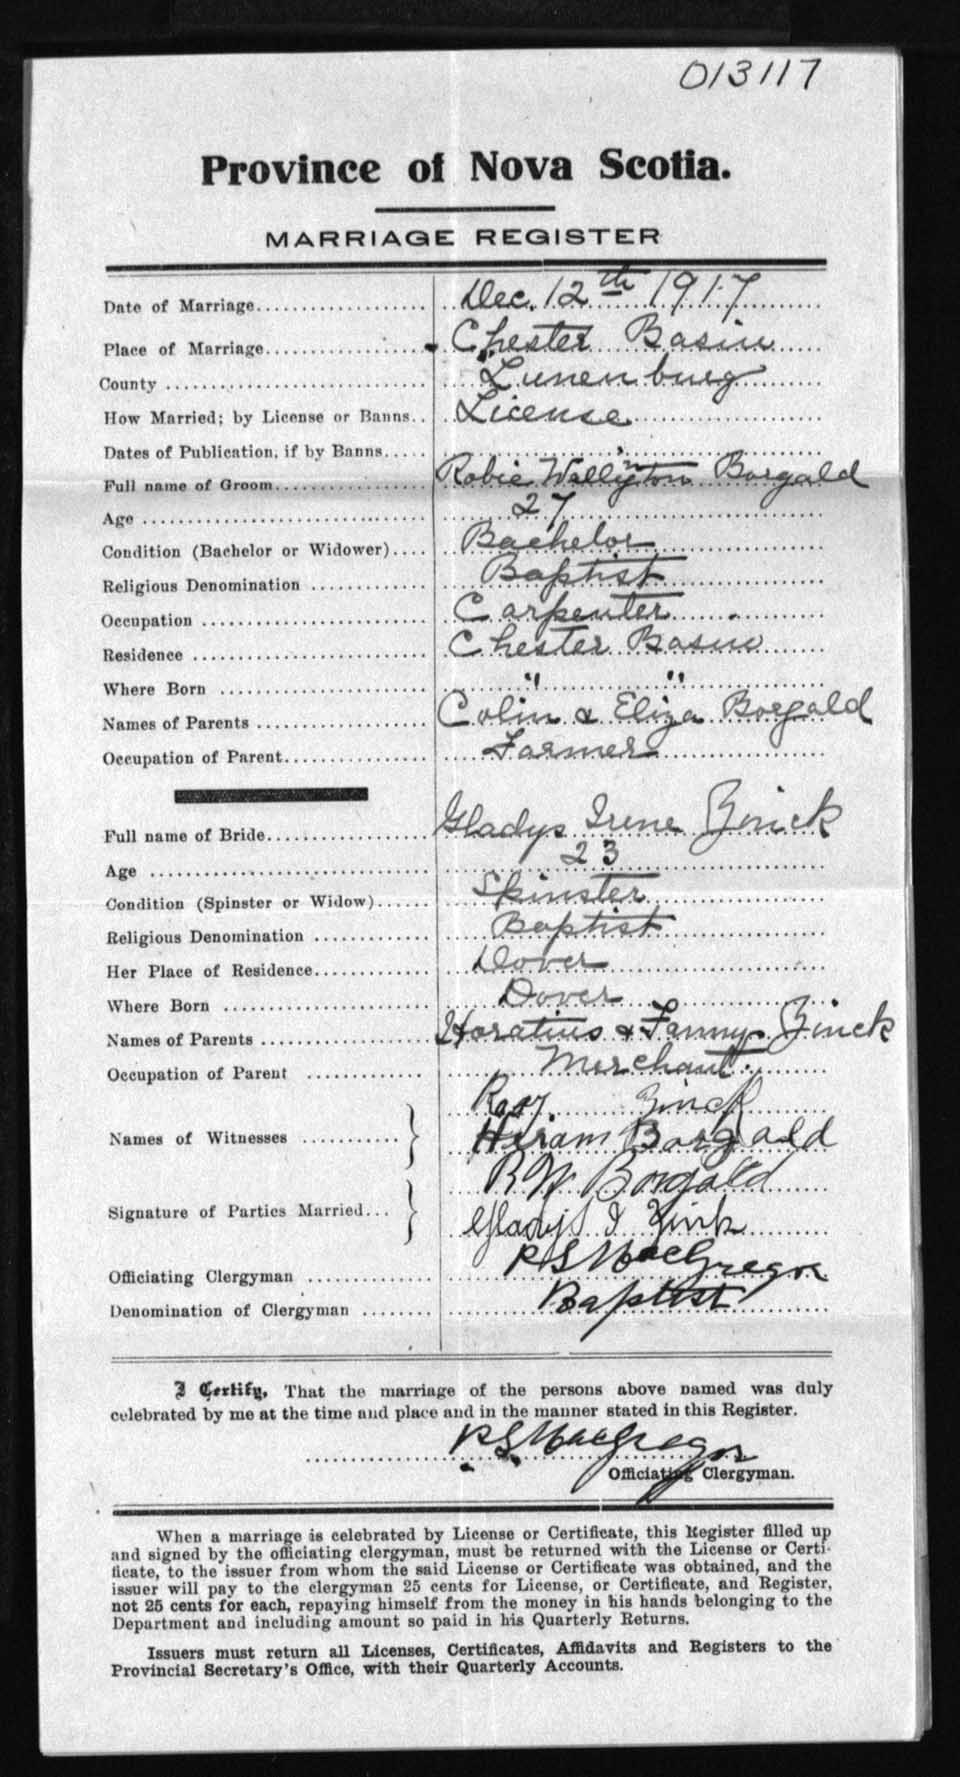 013117
Province of Nova Scotia.
MARRIAGE REGISTER
Date of Marriage Dec. 12th 1917
Place of Marriage Chester Basin
County Lunenburg
How Married; by License or Banns License
Dates of Publication, if by Banns
Full name of Groom Robie Wellington Borgald
Age 27
Condition (Bachelor or Widower) Bachelor
Religious Denomination Baptist
Occupation Carpenter
Residence Chester Basin
Where Born " "
Names of Parents Colin & Eliza Borgald
Occupation of Parent Farmer
Full name of Bride Gladys Irene Zinck
Age 23
Condition (Spinster or Widow) Spinster
Religious Denomination Baptist
Her Place of Residence Dover
Where Born Dover
Names of Parents Horatius & Fanny Zinck
Occupation of Parent Merchant
Roy Zinck
Names of Witnesses } Hiram Borgald
R W Borgald
Signature of Parties Married } Gladys I Zink
Officiating Clergyman R S MacGregor
Denomination of Clergyman Baptist
I Certify, That the marriage of the persons above named was duly
celebrated by me at the time and place and in the manner stated in this Register.
R S MacGregor
Officiating Clergyman.
When a marriage is celebrated by License or Certificate, this Register filled up
and signed by the officiating clergyman, must be returned with the License or Certi-
ficate, to the issuer from whom the said License or Certificate was obtained, and the
issuer will pay to the clergyman 25 cents for License, or Certificate, and Register,
not 25 cents for each, repaying himself from the money in his hands belonging to the
Department and including amount so paid in his Quarterly Returns.
Issuers must return all Licenses, Certificates, Affidavits and Registers to the
Provincial Secretary's Office, with their Quarterly Accounts.